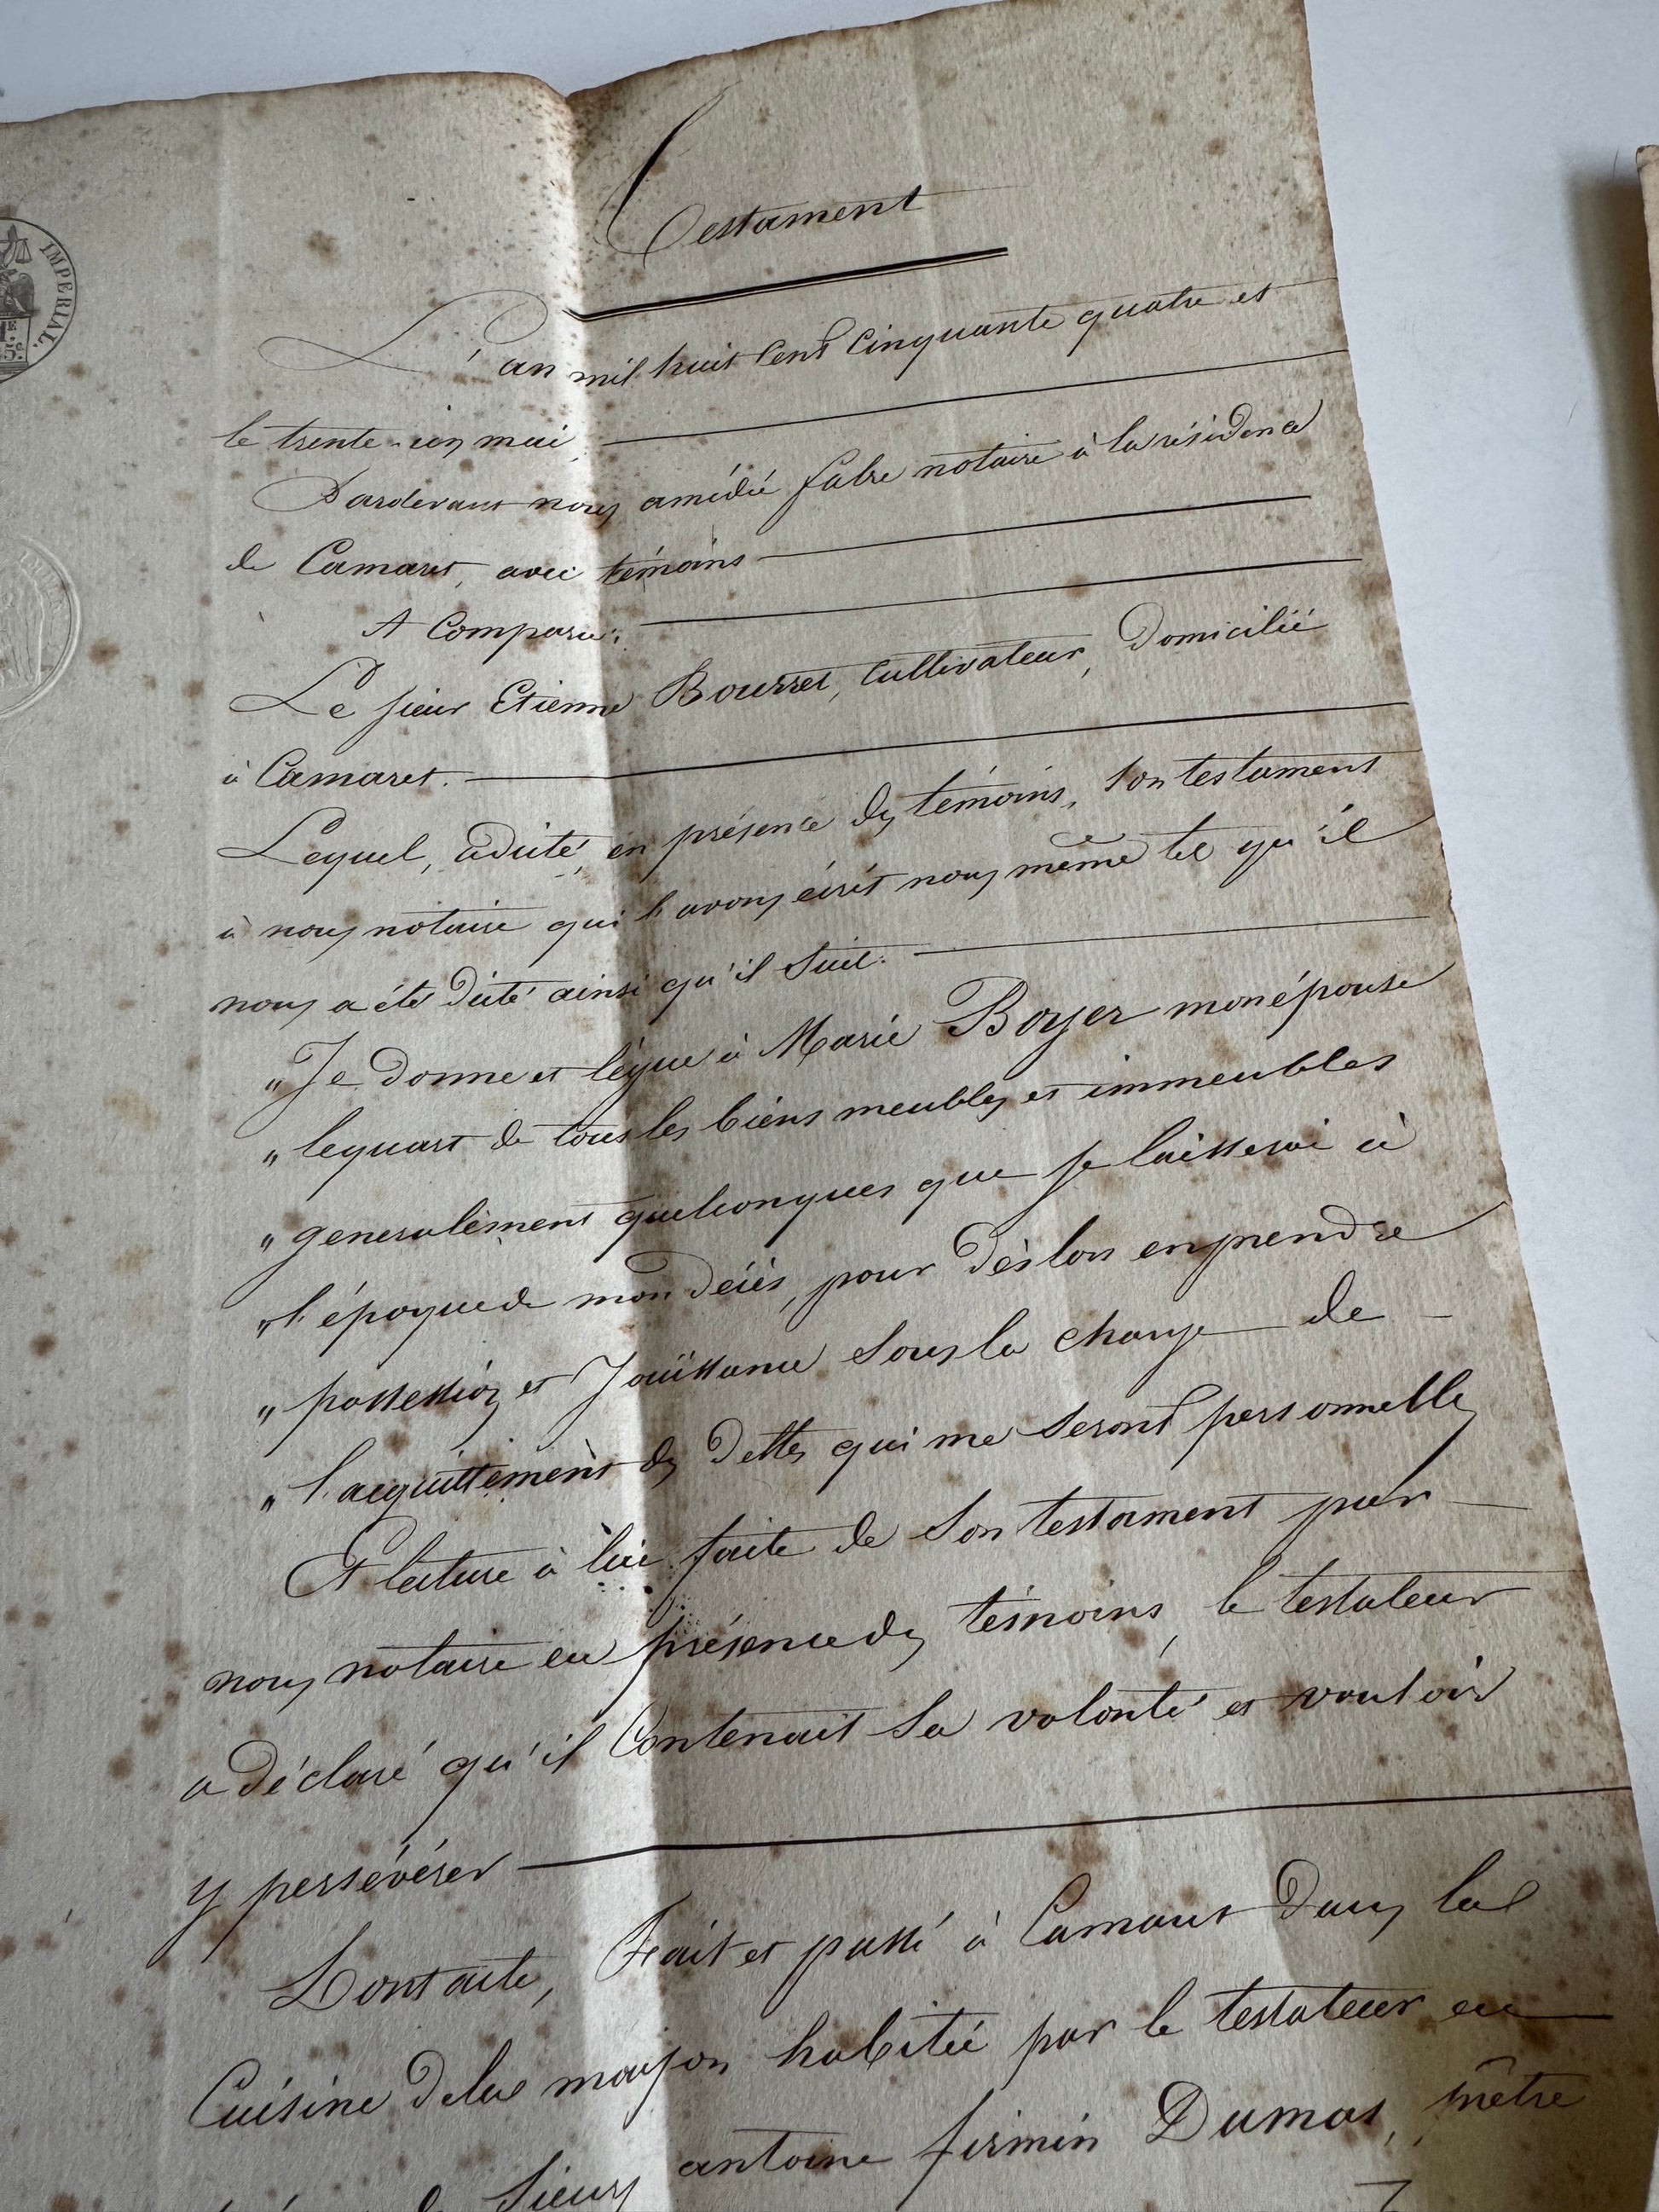 IMPERIAL.
5.c
Testament
L'an mil huit cent cinquante quatre et
le trente-un mai,
Pardevant nous amédée fabre notaire à la résidence
de Camaret, avec témoins
A Comparu:
Le sieur Etienne Bourret, Cultivateur, Domicilié
à Camaret.
Lequel, a dicté, en présence des témoins, son testament
à nous notaire qui l'avons écrit nous même tel qu'il
nous a été dicté ainsi qu'il suit.
"Je donne et lègue à Marie Boyer mon épouse
"le quart de tous les biens meubles et immeubles
"generalement quelconques que je laisserai à
"l'époque de mon décès, pour dès lors en prendre
"possession et Jouissance sous la charge de
"l'acquittement des dettes qui me seront personnelles
Et lecture à lui faite de son testament par
nous notaire en présence des témoins, le testateur
a déclaré qu'il Contenait sa volonté et vouloir
y persévérer
Dont acte, Fait et passé à Camaret Dans la
Cuisine de la maison habitée par le testateur en
Sieurs antoine firmin Dumas, prêtre